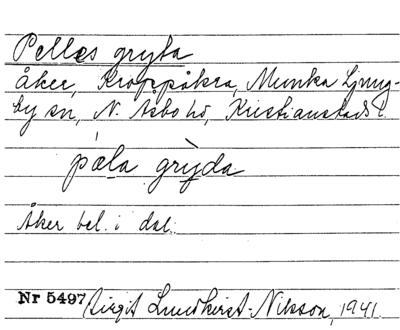 Pelles gryta
Åker, Kroppåkra, Munka Ljung-
by sn, N. Åsbo hd, Kristianstads l.
pæla grỳda
Åker bel. i dal.
Nr 5497 Birgit Lundkvist-Nilsson, 1941.